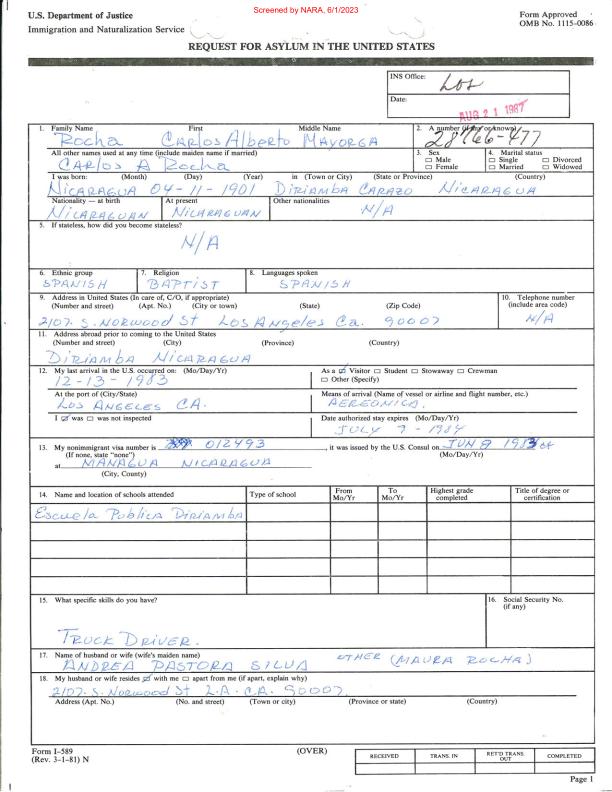 Screened by NARA, 6/1/2023
U.S. Department of Justice
Immigration and Naturalization Service
Form Approved
OMB No. 1115-0086
REQUEST FOR ASYLUM IN THE UNITED STATES
INS Office: LOS
Date: AUG 21 1987
1. Family Name First Middle Name
Rocha Carlos Alberto Mayorga
2. A number (if any or known)
All other names used at any time (include maiden name if married)
Carlos A Rocha
3. Sex
☐ Male
☐ Female
4. Marital status
☐ Single ☐ Divorced
☐ Married ☐ Widowed
I was born: (Month) (Day) (Year) in (Town or City) (State or Province) (Country)
Nicaragua 04-11-1901 Diriamba Carazo Nicaragua
Nationality — at birth At present Other nationalities
Nicaraguan Nicaraguan N/A
5. If stateless, how did you become stateless?
N/A
6. Ethnic group 7. Religion 8. Languages spoken
SPANISH BAPTIST SPANISH
9. Address in United States (In care of, C/O, if appropriate)
(Number and street) (Apt. No.) (City or town) (State) (Zip Code)
2107. S. Norwood St Los Angeles Ca. 90007
10. Telephone number
(include area code)
N/A
11. Address abroad prior to coming to the United States
(Number and street) (City) (Province) (Country)
Diriamba Nicaragua
12. My last arrival in the U.S. occurred on: (Mo/Day/Yr)
12-13-1983
As a ☑ Visitor ☐ Student ☐ Stowaway ☐ Crewman
☐ Other (Specify)
At the port of (City/State)
Los Angeles CA.
Means of arrival (Name of vessel or airline and flight number, etc.)
AEREONICA.
I ☑ was ☐ was not inspected
Date authorized stay expires (Mo/Day/Yr)
JULY 7-1984
13. My nonimmigrant visa number is 012493, it was issued by the U.S. Consul on JUN 8
(If none, state "none") (Mo/Day/Yr)
at MANAGUA NICARAGUA
(City, County)
14. Name and location of schools attended Type of school From Mo/Yr To Mo/Yr Highest grade completed Title of degree or certification
Escuela Publica Diriamba
15. What specific skills do you have?
TRUCK DRIVER.
16. Social Security No.
(if any)
17. Name of husband or wife (wife's maiden name)
ANDREA PASTORA SILVA OTHER (MAURA ROCHA)
18. My husband or wife resides ☑ with me ☐ apart from me (if apart, explain why)
2107. S. Norwood St L.A. CA. 90007.
Address (Apt. No.) (No. and street) (Town or city) (Province or state) (Country)
Form I-589
(Rev. 3-1-81) N
(OVER)
RECEIVED TRANS. IN RET'D TRANS. OUT COMPLETED
Page 1